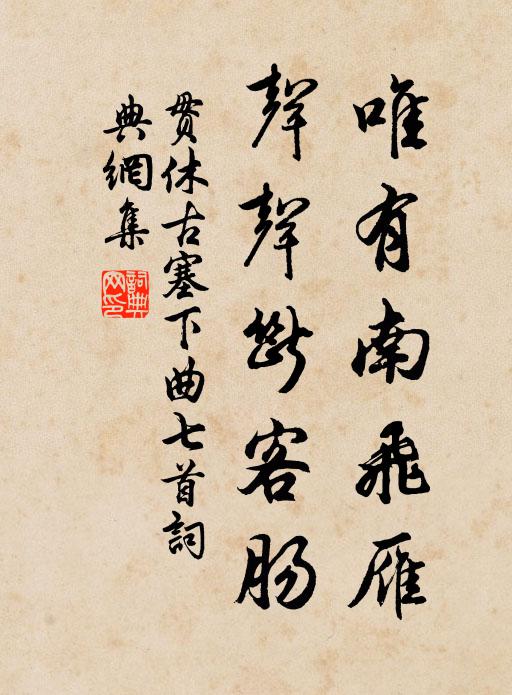 唯有南飛雁
聲聲斷客腸
貫休古塞下曲七首詞
典網集
詞典
网印